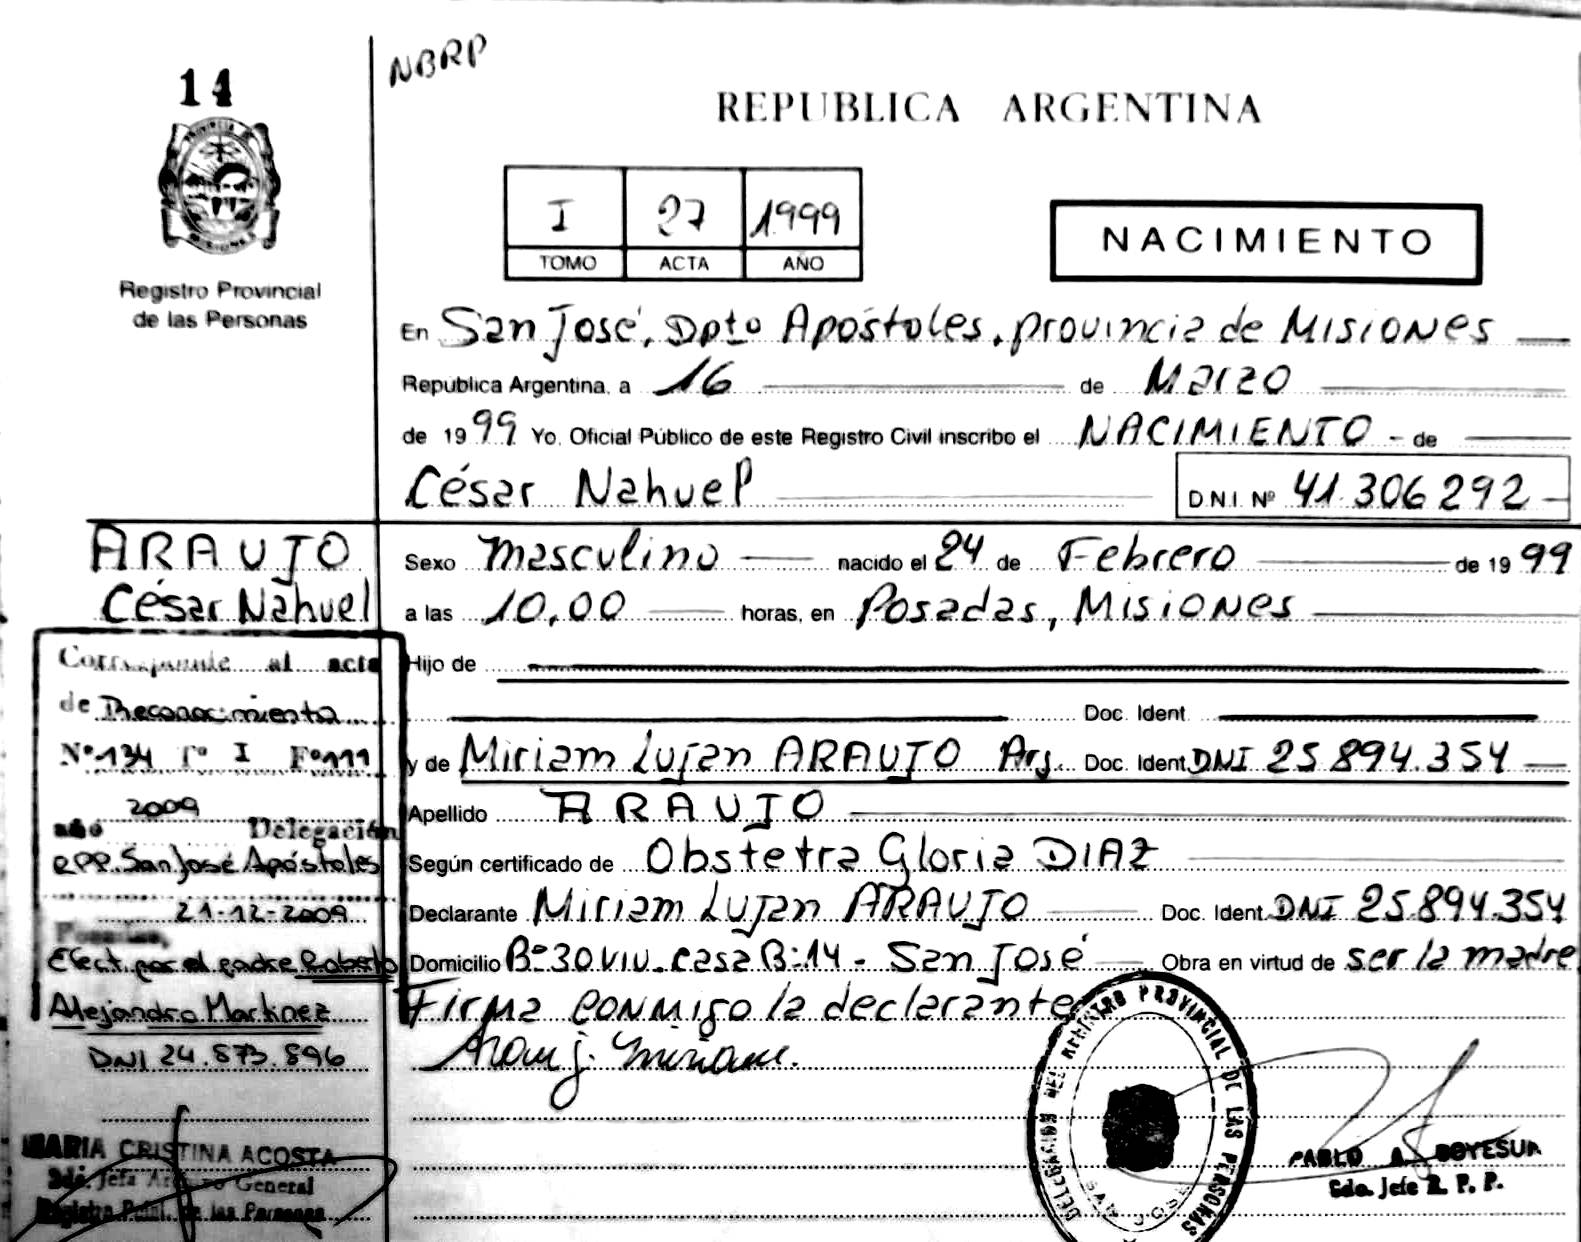 14
NBRP
REPUBLICA ARGENTINA
PROVINCIA DE
MISIONES
Registro Provincial
de las Personas
I 27 1999
TOMO ACTA AÑO
NACIMIENTO
En San José, Dpto Apóstoles, provincia de Misiones
Republica Argentina, a 16 de Marzo
de 1999 Yo, Oficial Público de este Registro Civil inscribo el NACIMIENTO - de
César Nahuel
D.N.I. Nº 41.306.292 -
ARAUJO
César Nahuel
Sexo masculino nacido el 24 de Febrero de 1999
a las 10,00 horas, en Posadas, Misiones
Hijo de
Doc. Ident.
y de Miriam Lujan ARAUJO Arg. Doc. Ident. DNI 25.894.354
Apellido ARAUJO
Según certificado de Obstetra Gloria DIAZ
Declarante Miriam Lujan ARAUJO Doc. Ident. DNI 25.894.354
Domicilio Bº 30 viv. casa B:14 - San José Obra en virtud de ser la madre
Firma conmigo la declarante
Arauj. Miriam.
Corresponde al acta
de Reconocimiento
Nº 134 Tº I Fº 111
año 2009 Delegación
RPP. San José Apóstoles
Posadas, 21-12-2009
Efect. por el padre Roberto
Alejandro Martinez
DNI 24.873.896
MARIA CRISTINA ACOSTA
2da. Jefa Archivo General
Registro Pcial. de las Personas
DELEGACION DEL REGISTRO PROVINCIAL DE LAS PERSONAS
SAN JOSE
PABLO A. BOYESUK
Sdo. Jefe R. P. P.